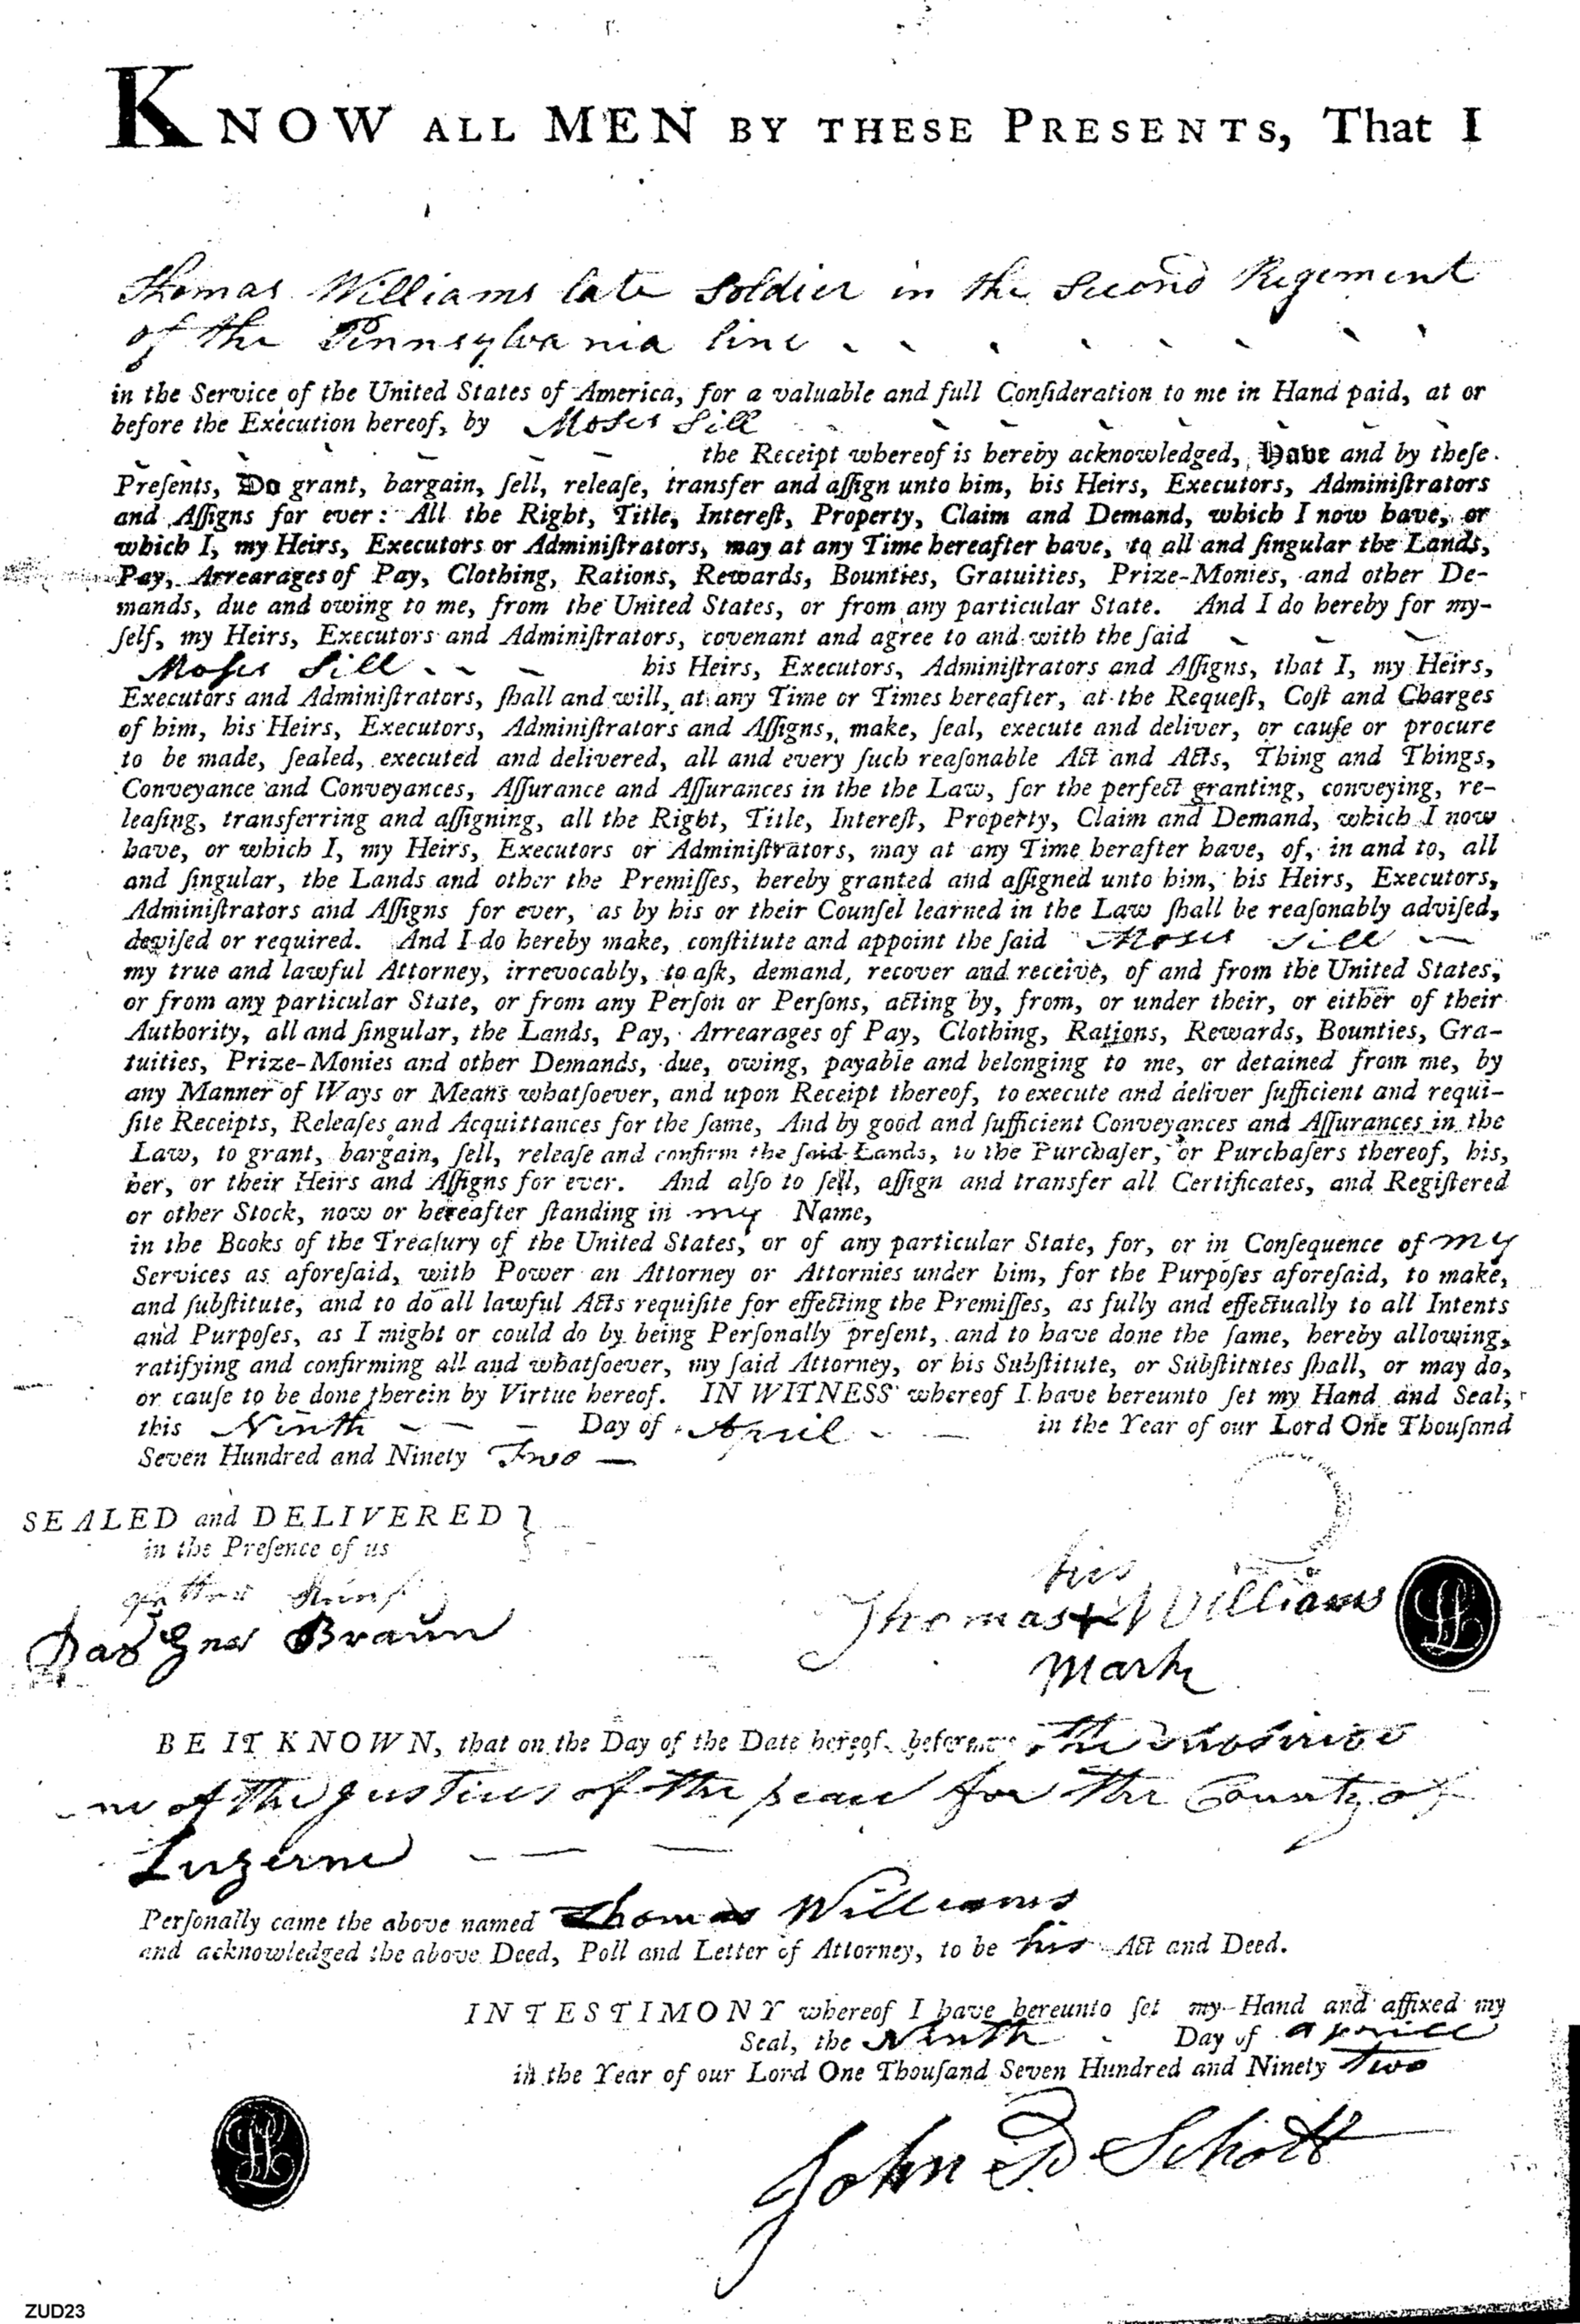 KNOW ALL MEN BY THESE PRESENTS, That I
Thomas Williams late Soldier in the Second Regiment
of the Pennsylvania line
in the Service of the United States of America, for a valuable and full Conſideration to me in Hand paid, at or
before the Execution hereof, by Moses Sill
the Receipt whereof is hereby acknowledged, Have and by theſe
Preſents, Do grant, bargain, ſell, releaſe, transfer and aſſign unto him, his Heirs, Executors, Adminiſtrators
and Aſſigns for ever: All the Right, Title, Intereſt, Property, Claim and Demand, which I now have, or
which I, my Heirs, Executors or Adminiſtrators, may at any Time hereafter have, to all and ſingular the Lands,
Pay, Arrearages of Pay, Clothing, Rations, Rewards, Bounties, Gratuities, Prize-Monies, and other De-
mands, due and owing to me, from the United States, or from any particular State. And I do hereby for my-
ſelf, my Heirs, Executors and Adminiſtrators, covenant and agree to and with the ſaid
Moses Sill his Heirs, Executors, Adminiſtrators and Aſſigns, that I, my Heirs,
Executors and Adminiſtrators, ſhall and will, at any Time or Times hereafter, at the Requeſt, Coſt and Charges
of him, his Heirs, Executors, Adminiſtrators and Aſſigns, make, ſeal, execute and deliver, or cauſe or procure
to be made, ſealed, executed and delivered, all and every ſuch reaſonable Act and Acts, Thing and Things,
Conveyance and Conveyances, Aſſurance and Aſſurances in the the Law, for the perfect granting, conveying, re-
leaſing, transferring and aſſigning, all the Right, Title, Intereſt, Property, Claim and Demand, which I now
have, or which I, my Heirs, Executors or Adminiſtrators, may at any Time herafter have, of, in and to, all
and ſingular, the Lands and other the Premiſſes, hereby granted and aſſigned unto him, his Heirs, Executors,
Adminiſtrators and Aſſigns for ever, as by his or their Counſel learned in the Law ſhall be reaſonably adviſed,
deviſed or required. And I do hereby make, conſtitute and appoint the ſaid Moses Sill
my true and lawful Attorney, irrevocably, to aſk, demand, recover and receive, of and from the United States,
or from any particular State, or from any Perſon or Perſons, acting by, from, or under their, or either of their
Authority, all and ſingular, the Lands, Pay, Arrearages of Pay, Clothing, Rations, Rewards, Bounties, Gra-
tuities, Prize-Monies and other Demands, due, owing, payable and belonging to me, or detained from me, by
any Manner of Ways or Means whatſoever, and upon Receipt thereof, to execute and deliver ſufficient and requi-
ſite Receipts, Releaſes and Acquittances for the ſame, And by good and ſufficient Conveyances and Aſſurances in the
Law, to grant, bargain, ſell, releaſe and confirm the ſaid Lands, to the Purchaſer, or Purchaſers thereof, his,
her, or their Heirs and Aſſigns for ever. And alſo to ſell, aſſign and transfer all Certificates, and Regiſtered
or other Stock, now or hereafter ſtanding in my Name,
in the Books of the Treaſury of the United States, or of any particular State, for, or in Conſequence of my
Services as aforeſaid, with Power an Attorney or Attornies under him, for the Purpoſes aforeſaid, to make,
and ſubſtitute, and to do all lawful Acts requiſite for effecting the Premiſſes, as fully and effectually to all Intents
and Purpoſes, as I might or could do by being Perſonally preſent, and to have done the ſame, hereby allowing,
ratifying and confirming all and whatſoever, my ſaid Attorney, or his Subſtitute, or Subſtitutes ſhall, or may do,
or cauſe to be done therein by Virtue hereof. IN WITNESS whereof I have hereunto ſet my Hand and Seal,
this Ninth Day of April in the Year of our Lord One Thouſand
Seven Hundred and Ninety Two
SEALED and DELIVERED }
in the Preſence of us
Braun
his
Thomas + Williams
Mark
BE IT KNOWN, that on the Day of the Date hereof, before me the
of the Justices of the peace for the County of
Luzerne
Perſonally came the above named Thomas Williams
and acknowledged the above Deed, Poll and Letter of Attorney, to be his Act and Deed.
IN TESTIMONY whereof I have hereunto ſet my Hand and affixed my
Seal, the Ninth Day of aprill
in the Year of our Lord One Thouſand Seven Hundred and Ninety Two
John P Schott
ZUD23